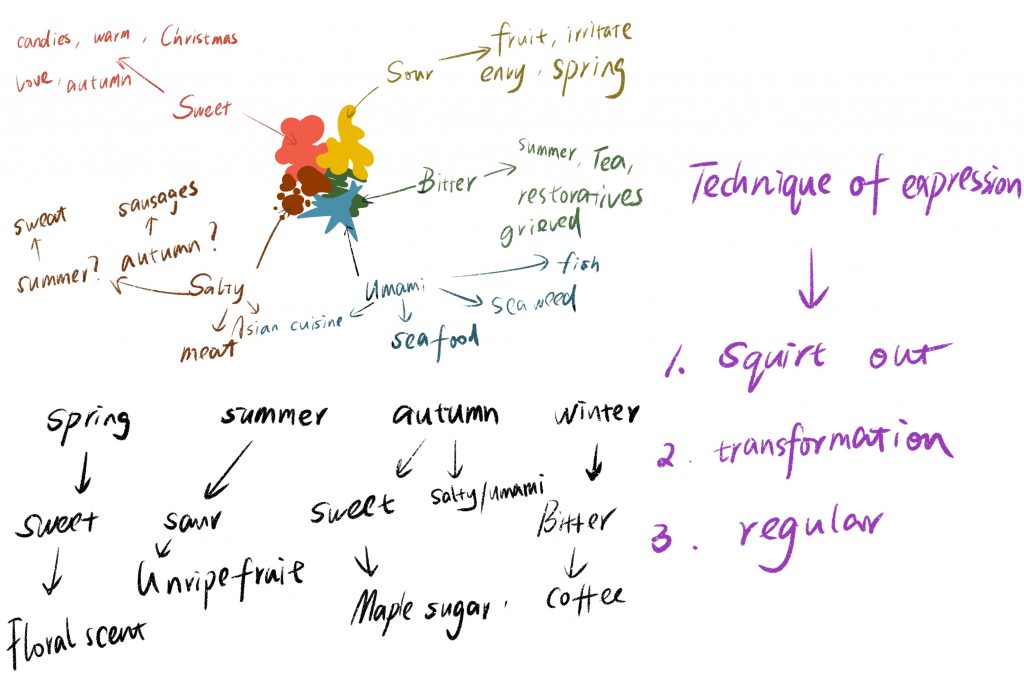 candies, warm, Christmas
love, autumn
Sweet
Sour
fruit, irritate
envy, spring
Bitter
summer, Tea,
restoratives
grieved
sweat
sausages
summer?
autumn?
Salty
meat
Asian cuisine
Umami
fish
sea weed
seafood
Technique of expression
1. squirt out
2. transformation
3. regular
spring summer autumn winter
sweet sour sweet salty/umami Bitter
Floral scent Unripe fruite Maple sugar. coffee